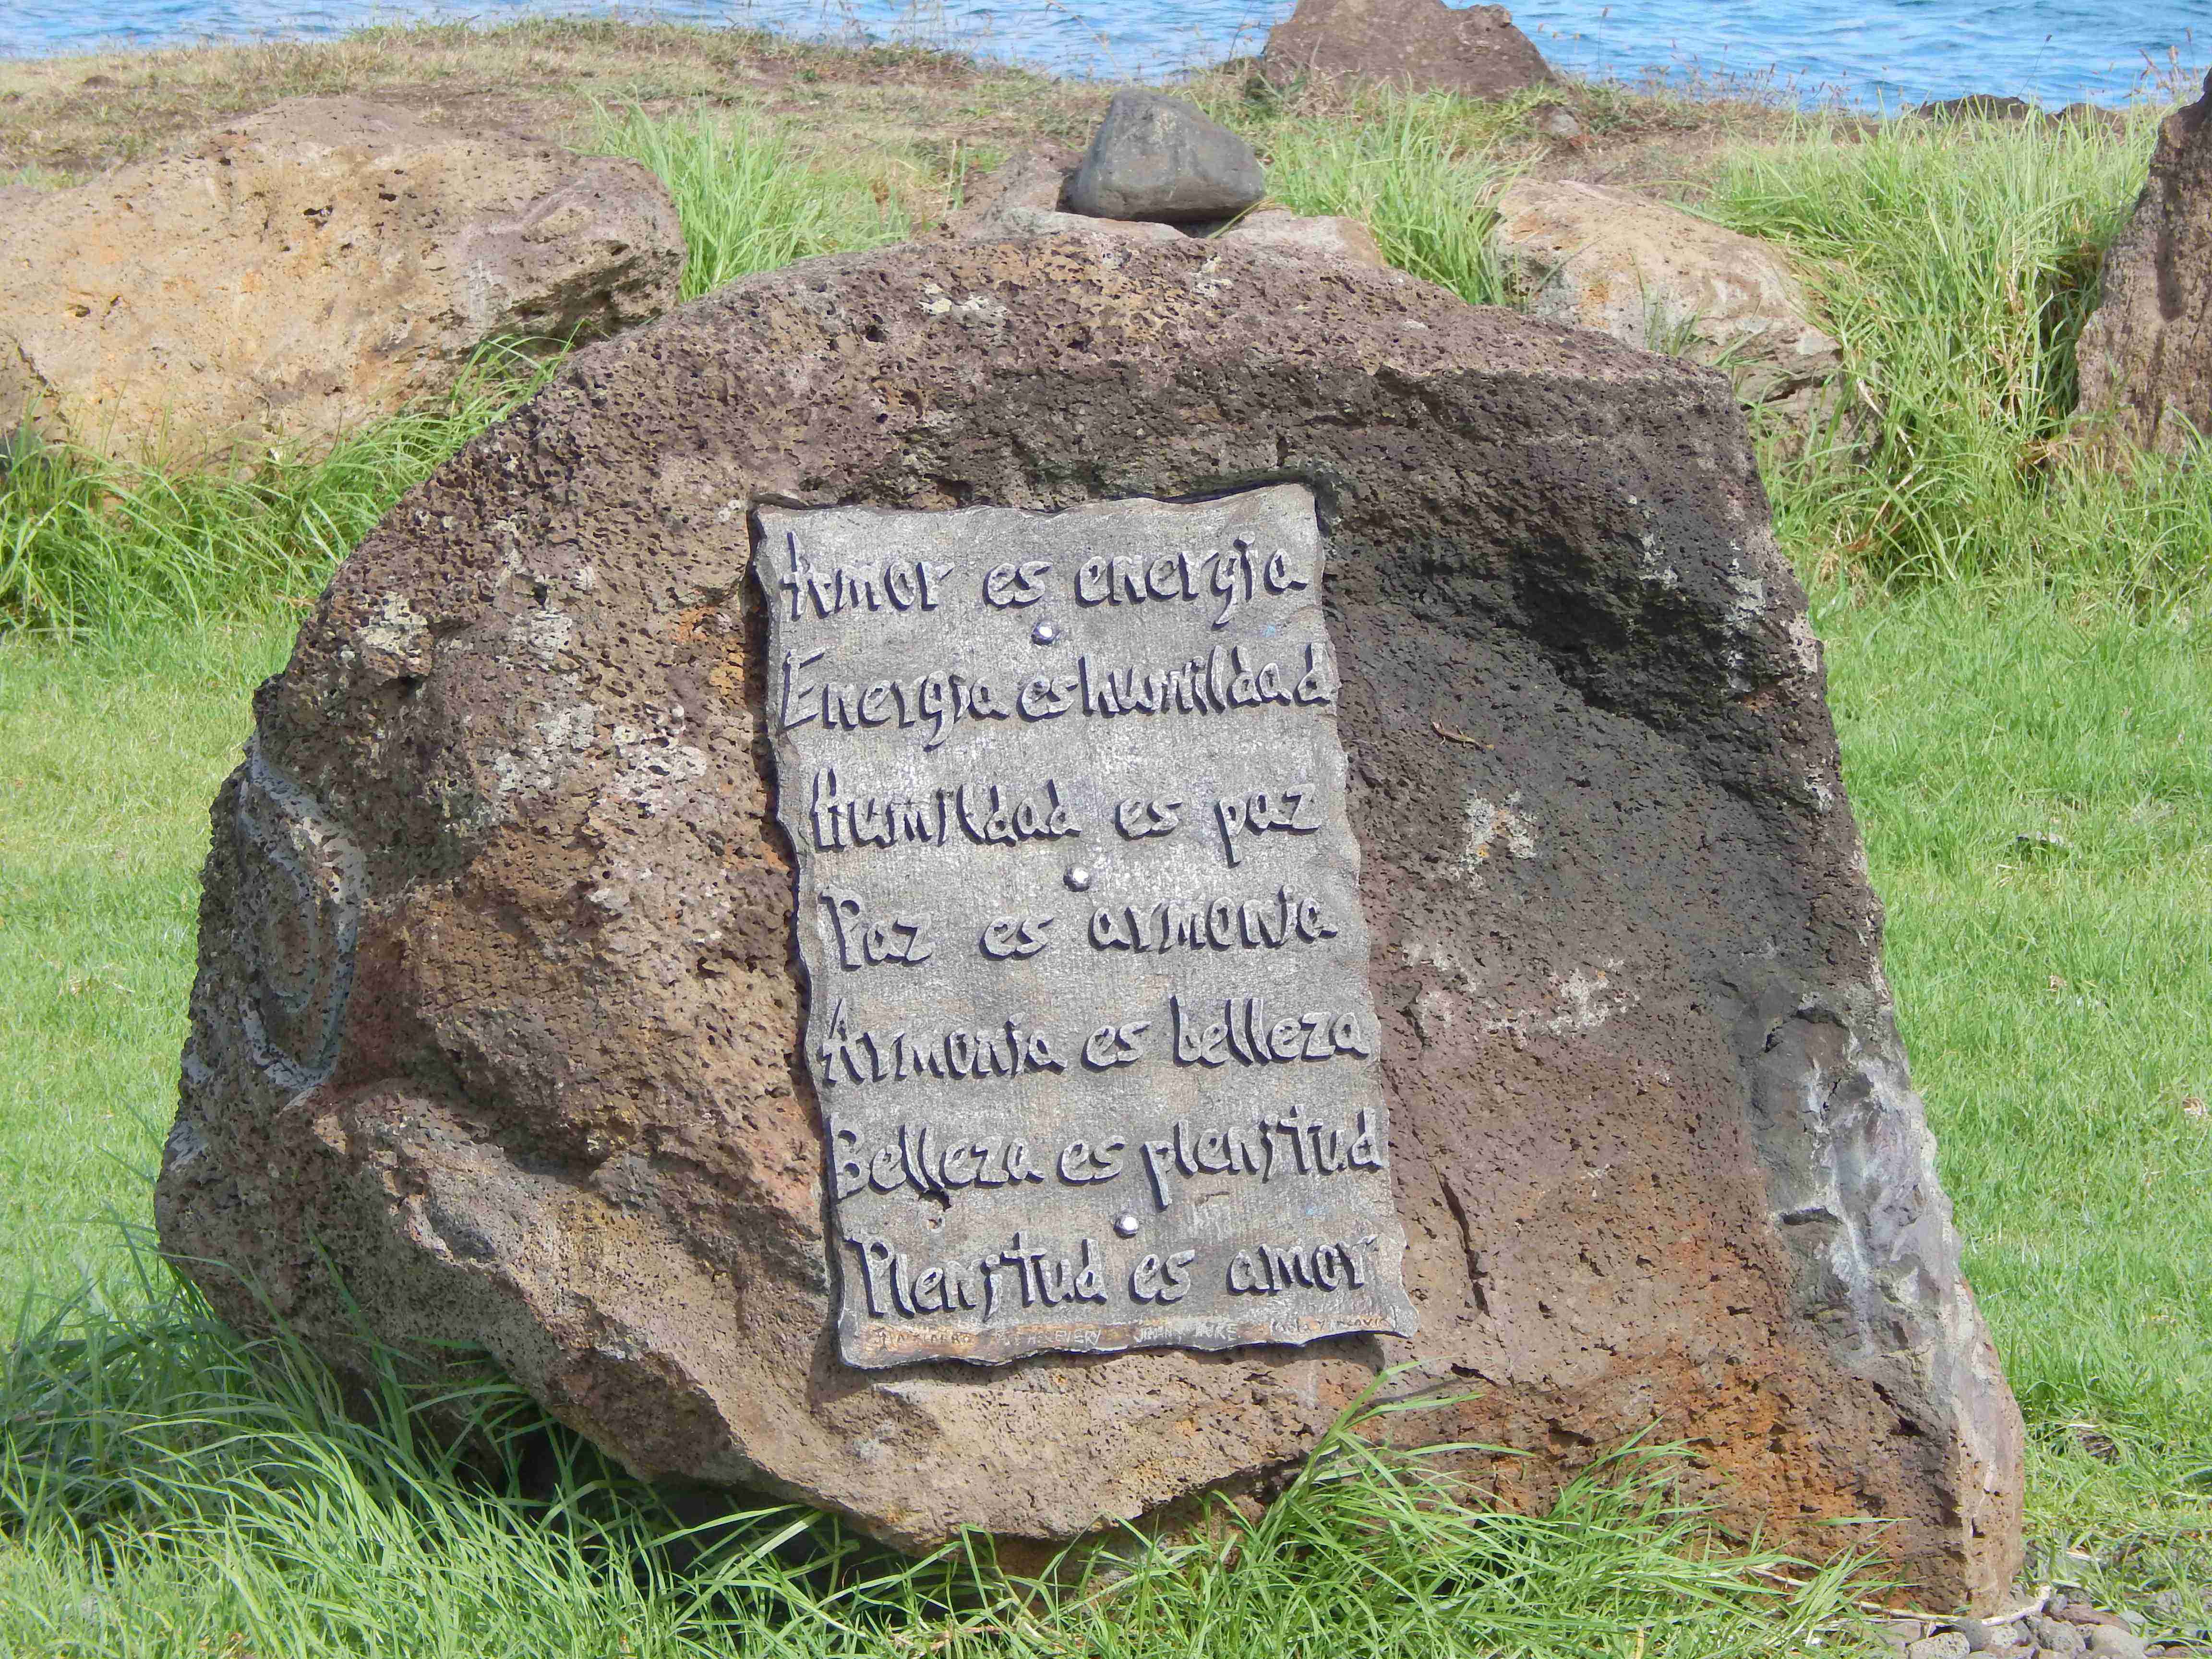 Amor es energia
Energia es humildad
Humildad es paz
Paz es armonia
Armonia es belleza
Belleza es plenitud
Plenitud es amor